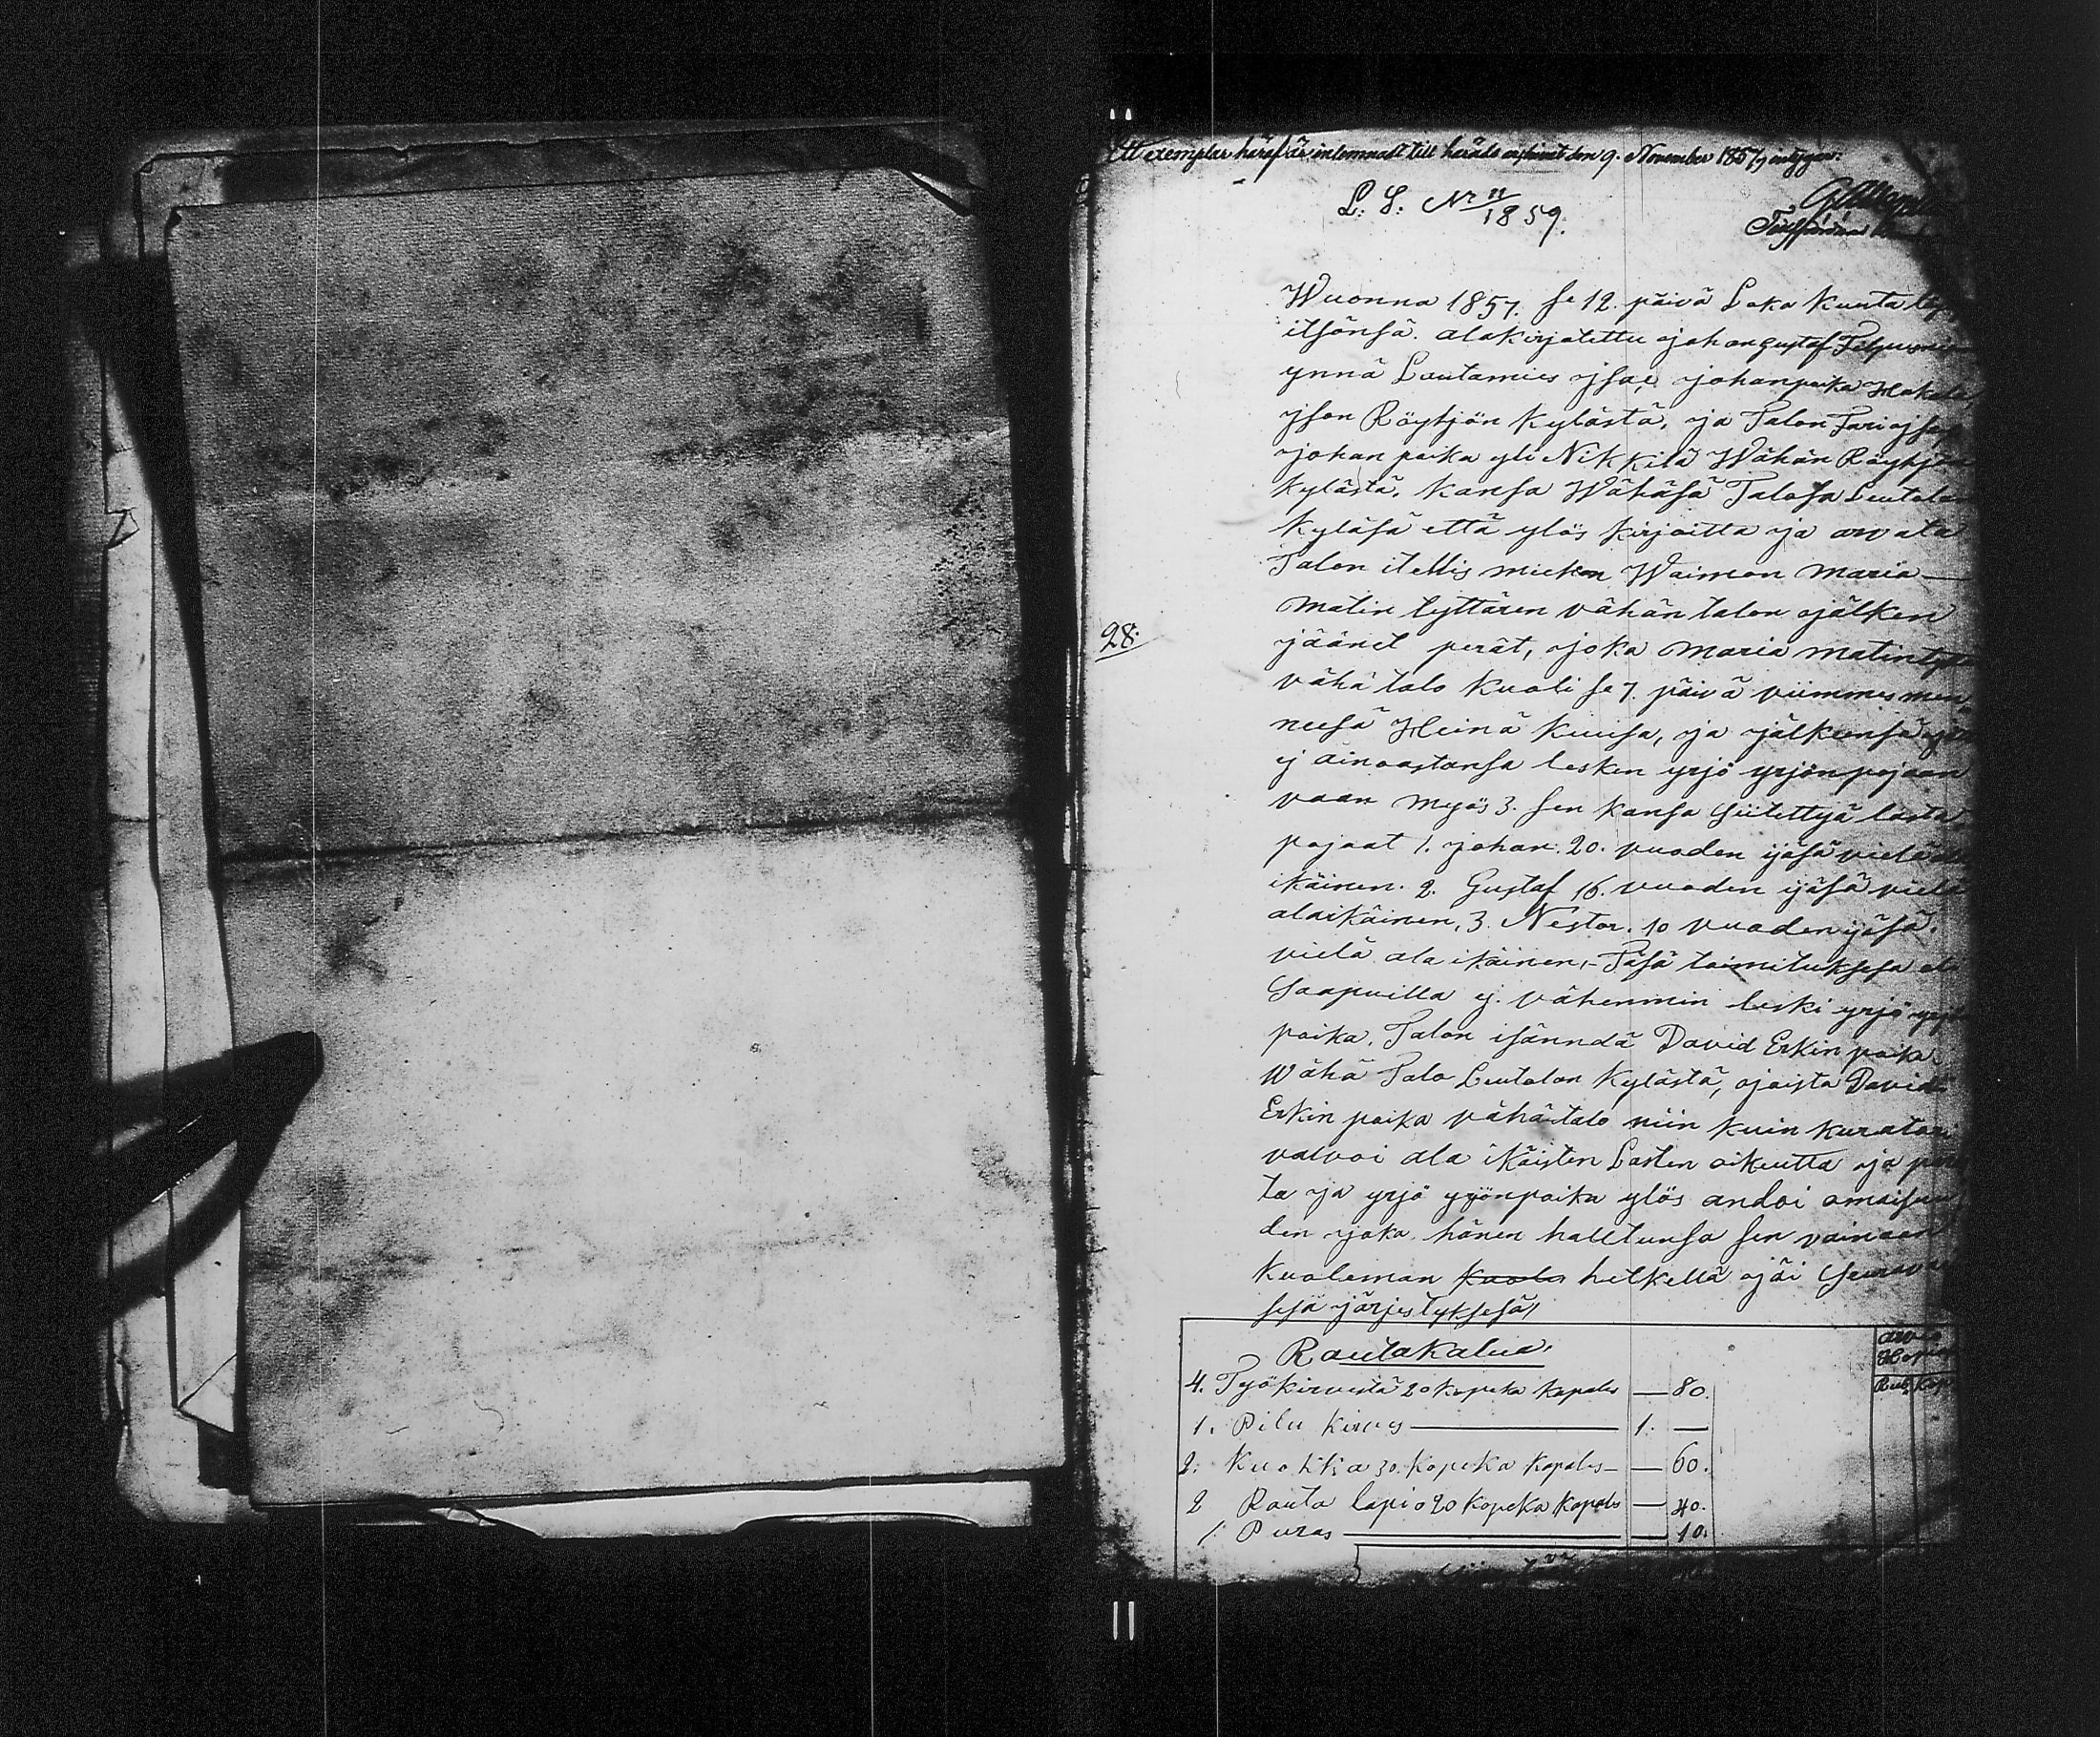 Ett exemplar häraf är inlemnadt till härads arkivet den 9. November 1857, intygar:
L: S: Nr 11/1859.
Wuonna 1857. se 12. päivä Loka Kuuta
itsänsä. alakirjotettu johan gustaf
ynnä Lautamies jsac johanpoika
json Röyhjön Kylästä, ja Talon
johan poika yli Nikkilä Wähän Röyhjön
kylästä, kansa Wähäsä Talosa Leutolan
kyläsä että ylös kirjoitta ja arvata
Talon itellis miehen Waimon Maria
Matin tyttären vähän talon jälken
28.
jäänet perät, joka Maria
vähä talo kuoli se 7. päivä viimmes men
neesä Heinä kuusa, ja jälkensä
ej ainoastansa lesken yrjö yrjön pojaan
vaan myös 3. sen kansa siitettyä lasta
pojaat 1. johan. 20. vuoden ijäsä vielä
ikäinen. 2. Gustaf 16. vuoden ijäsä vielä
alaikäinen, 3. Nestor. 10 vuoden ijäsä.
vielä ala ikäinen,- Täsä toimituksesa
Saapuilla ej. vähemmin leski yrjö
poika, Talon isänndä David Erkin poika
Wähä Talo Leutolan Kylästä, joista David
Erkin poika vähä talo niin kuin kurator
valvoi ala ikäisten Lasten oikeutta ja
ta ja yrjö yrjönpoika ylös andoi omaisuu
den joka hänen halltunsa sen vainaan
Kuoleman Kuole hetkellä jäi
sesä järjestyksesä,
Rautakalua.
arvio
Rub. Kop
4. Työkirvestä 20 kopeka kapales — 80.
1. Pilu kirves 1. —
2. Kuokka 30. Kopeka kapales — 60.
2 Rauta lapio 20 kopeka kapales — 40.
1. Puras — 10.